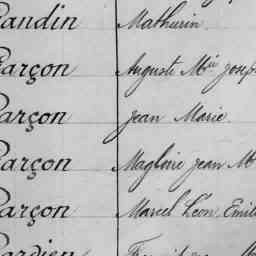 Gaudin Mathurin
Garçon Auguste Mie Joseph
Garçon Jean Marie
Garçon Magloire Jean M
Garçon Marcel Léon Emile
Gardien